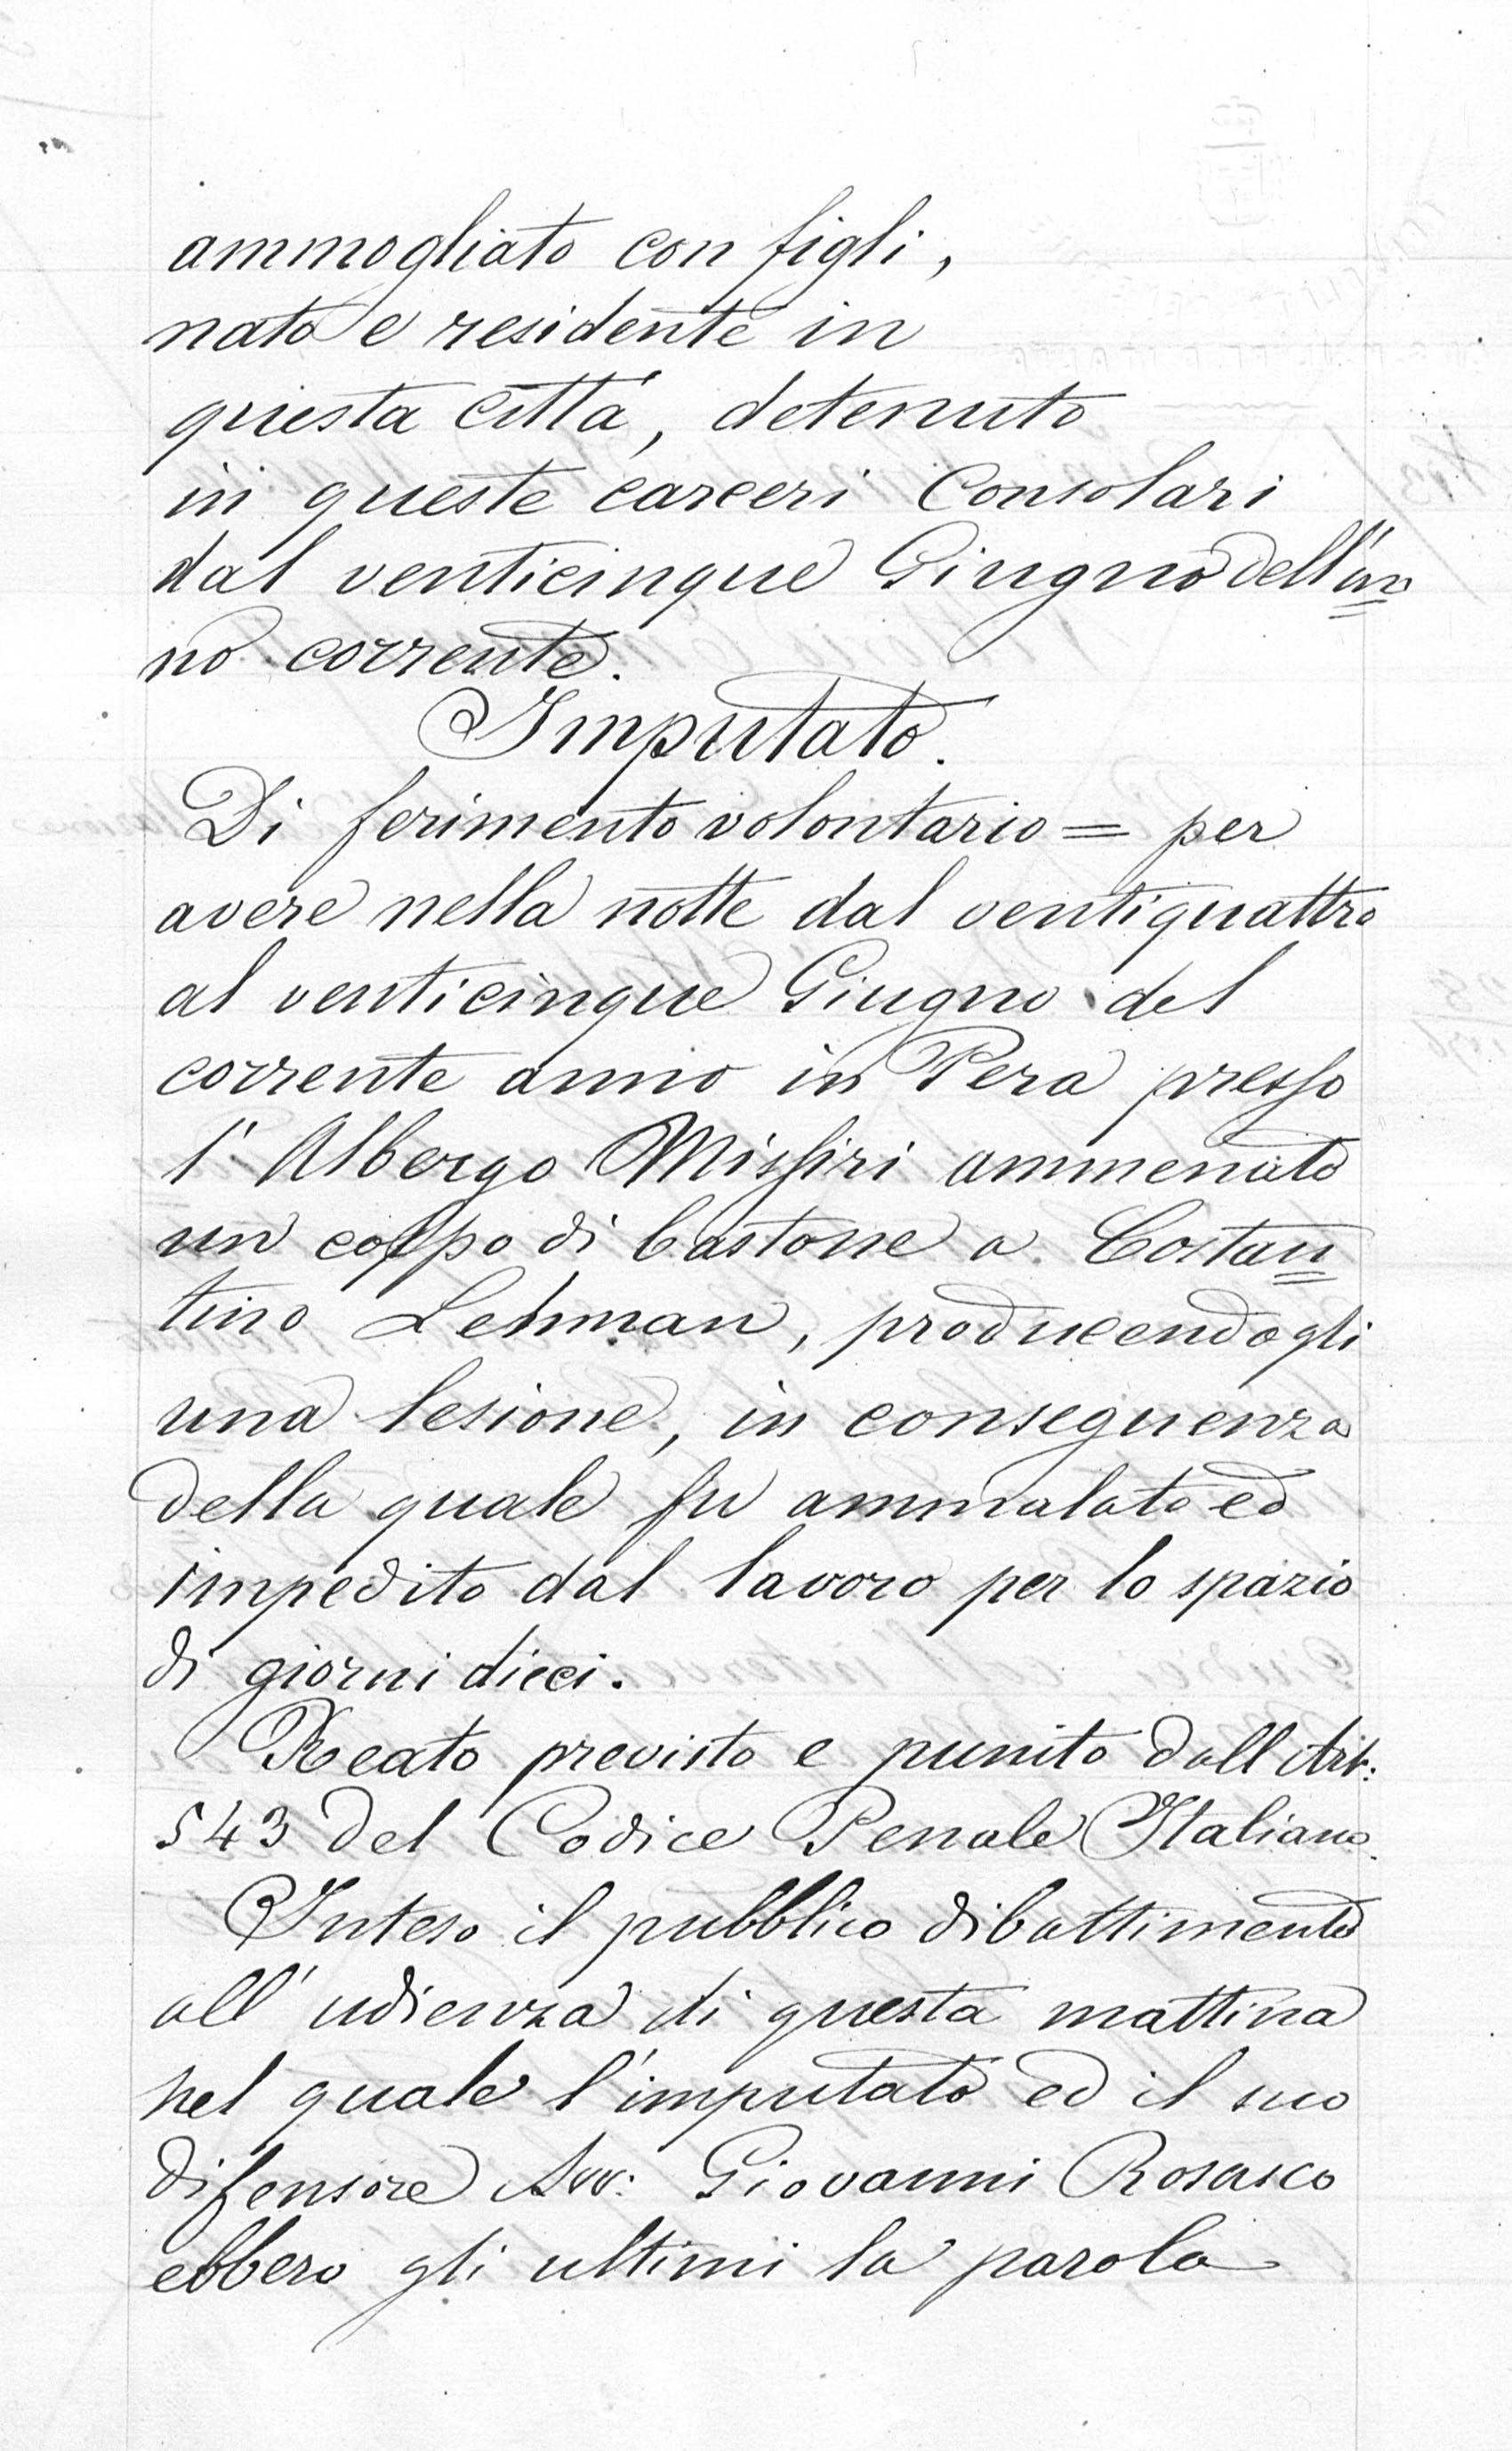 ammogliato con figli,
nato e residente in
questa città, detenuto
in queste carceri Consolari
dal venticinque Giugno dell'an
no corrente.
Imputato.
Di ferimento volontario = per
avere nella notte dal ventiquattro
al venticinque Giugno del
corrente anno in Pera presso
l'Albergo Missiri ammenato
un colpo di bastone a Costan
tino Lehman, producendogli
una lesione, in conseguenza
della quale fu ammalato ed
impedito dal lavoro per lo spazio
di giorni dieci.
Reato previsto e punito dall Art:
543 del Codice Penale Italiano.
Inteso il pubblico dibattimento
all'udienza di questa mattina
nel quale l'imputato ed il suo
difensore Avv: Giovanni Rosasco
ebbero gli ultimi la parola